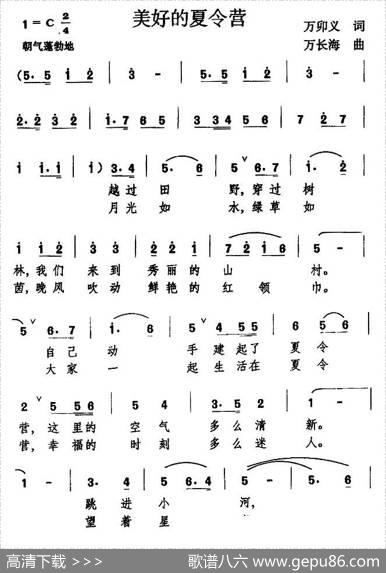 美好的夏令营
1=C 2/4
万卯义 词
朝气蓬勃地
万长海 曲
(5·5 i 2 | 3 - | 5·5 i 2 | 3 - |
2·2 3 3 | i·7 6 5 | 3·3 5 6 | 7 2 7 |
i i·i | i) 3·4 | 5· 6 | 5 ∨ 6·7 | i· 2 |
越过 田 野,穿过 树
月光 如 水,绿草 如
i i 2 2 | 3 3 | 2 2 i | 7 2 i 6 | 5 - |
林,我们 来到 秀丽的 山 村。
茵,晚风 吹动 鲜艳的 红领 巾。
5 ∨ 6·7 | i· 6 | 5 ∨ 4 5 5 | 6 5 6 |
自己 动 手建起了 夏令
大家 一 起生活在 夏令
2 ∨ 5 5 6 | 5 4 | 3·5 2 | 1 - |
营,这里的 空气 多么清 新。
营,幸福的 时刻 多么迷 人。
1 - | 3· 4 | 5 6·4 | 5 - | 5· 6 |
跳进 小 河,
望着 星
高清下载 >>>
歌谱八六 www.gepu86.com